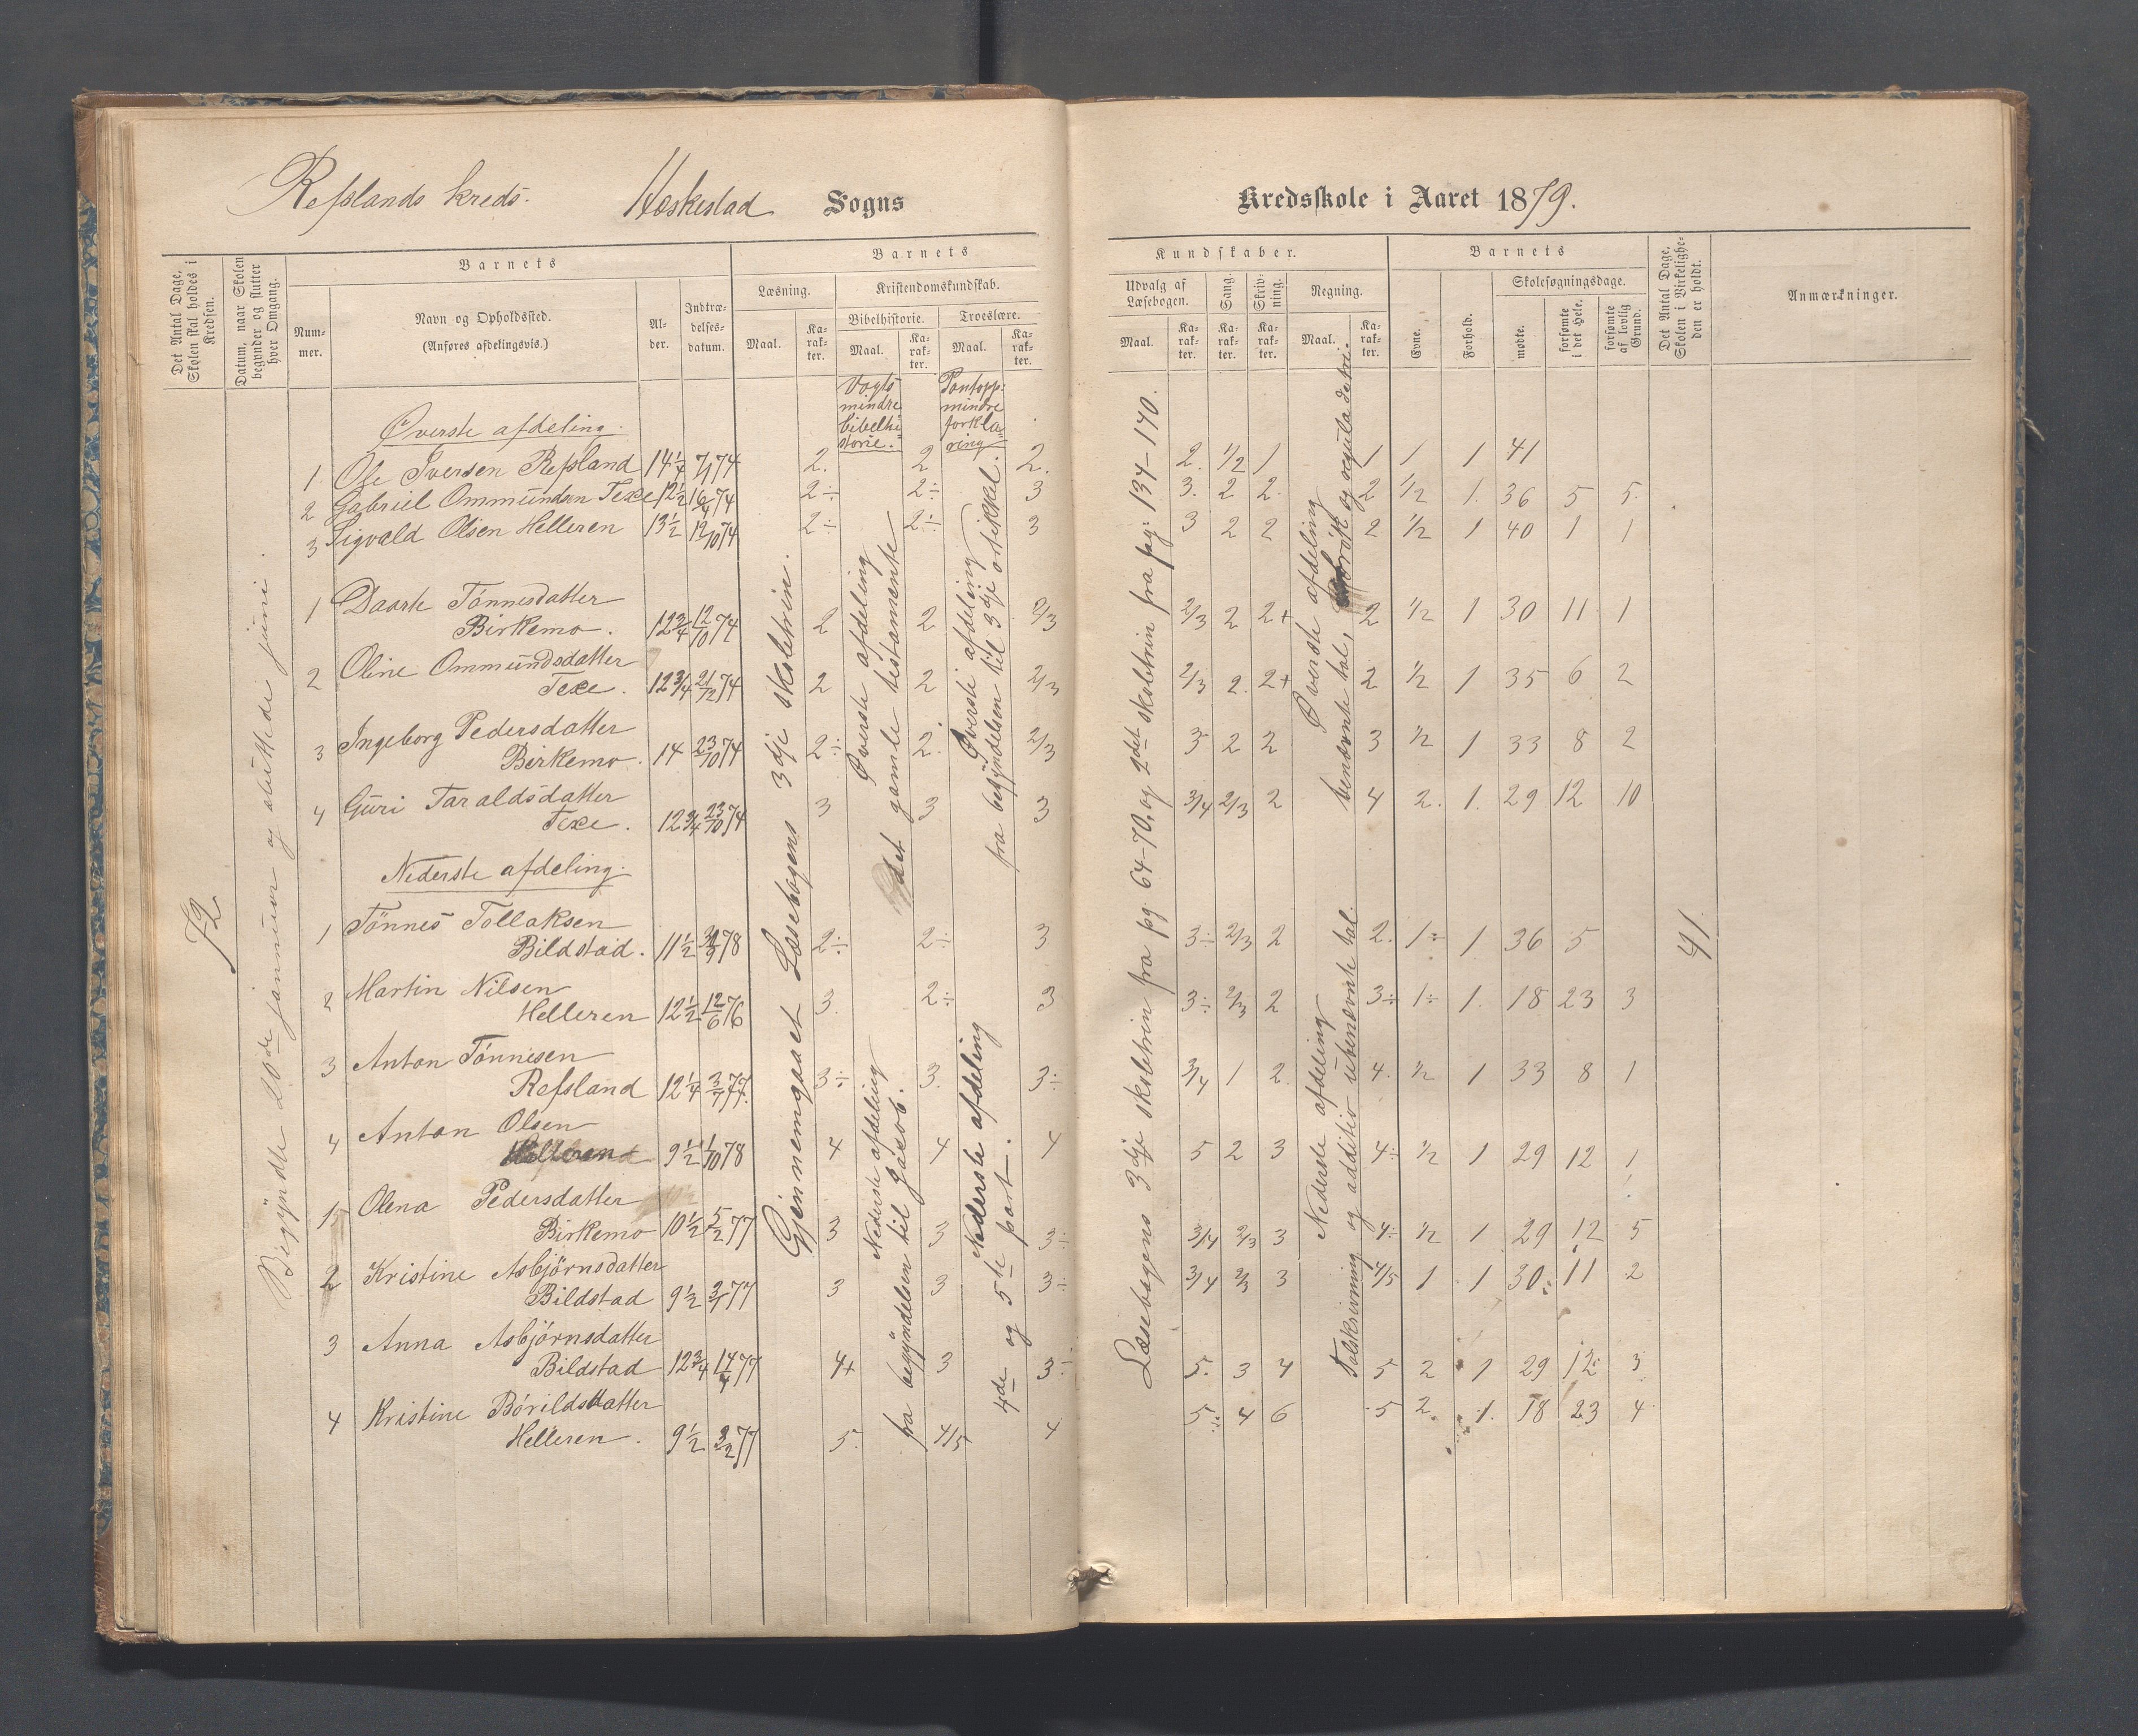 Refslands kreds. Heskestad Sogns
Kredsskole i Aaret 1879.
Det Antal Dage, Skolen skal holdes i Kredsen.
Datum, naar Skolen begynder og slutter hver Omgang.
Barnets
Num-mer.
Navn og Opholdssted.
(Anføres afdelingsvis.)
Al-der.
Indtræ-delses-datum.
Barnets
Læsning.
Maal.
Ka-rak-ter.
Kristendomskundskab.
Bibelhistorie.
Maal.
Ka-rak-ter.
Troeslære.
Maal.
Ka-rak-ter.
Kundskaber.
Udvalg af Læsebogen.
Maal.
Ka-rak-ter.
Sang.
Ka-rak-ter.
Skriv-ning.
Ka-rak-ter.
Regning.
Maal.
Ka-rak-ter.
Barnets
Evne.
Forhold.
Skolesøgningsdage.
mødte.
forsømte i det Hele.
forsømte af lovlig Grund.
Det Antal Dage, Skolen i Virkelighe-den er holdt.
Anmærkninger.
72
Begyndte 20de januuar og sluttede juni.
Vogts mindre bibelhistorie.
Pontopp: mindre forklaring
Øverste afdeling.
1 Ole Iversen Refsland 14 1/4 7/1 74 2. 2 2. 2. 1/2 1 1 1 1 41
2 Gabriel Ommundsen Texe 12 1/2 16/4 74 2÷ 2÷ 3 3. 2 2. 2 1/2 1. 36 5 5.
3 Sigvald Olsen Helleren 13 1/2 12/10 74 2÷ 2÷ 3 3 2 2 2 1/2 1 40 1 1
1 Daarte Tönnesdatter
Birkemo. 12 3/4 12/10 74 2 2 2/3 2/3 2 2+ 2 1/2 1 30 11 1
2 Oline Ommundsdatter
Texe. 12 3/4 21/12 74 2 2 2/3 2/3 2. 2+ 2 1/2 1 35 6 2
3 Ingeborg Pedersdatter
Birkemo. 14 23/10 74 2÷ 2. 2/3 3 2 2 3 1/2 1 33 8 2
4 Guri Taraldsdatter
Texe. 12 3/4 23/10 74 3 3 3 3/4 2/3 2 4 2. 1. 29 12 10
Nederste afdeling.
1 Tönnes Tollaksen
Bildstad. 11 1/2 78 2÷ 2÷ 3 3÷ 2/3 2 2. 1÷ 1 36 5
2 Martin Nilsen
Helleren 12 1/2 12/6 76 3. 2÷ 3 3÷ 2/3 2 3÷ 1÷ 1. 18 23 3
3 Anton Tönnesen
Refsland 12 1/4 3/7 77. 3÷ 3. 3÷ 3/4 1 2. 4. 1/2 1 33 8 1
4 Anton Olsen
Helleren 9 1/2 1/10 78 4 4 4 5 2 3 4÷ 1/2 1 29 12 1
1 Olena Pedersdatter
Birkemo 10 1/2 5/2 77 3 3 3÷ 3/4 2/3 3 4÷ 1/2 1 29 12 5
2 Kristine Asbjörnsdatter
Bildstad 9 1/2 3/1 77 3 3 3÷ 3/4 2/3 3 4/5 1 1 30 11 2
3 Anna Asbjörnsdatter
Bildstad 12 3/4 14/4 77 4+ 3 3÷ 5. 3 4 5 2 1 29 12 3
4 Kristine Börildsdatter
Helleren. 9 1/2 77 5. 4/5 4 5÷ 4 6 5 2. 1. 18 23 4
Gjennemgaaet Læsebogens 3dje skoletrin.
Øverste afdeling
det gamle testamente
Nederste afdeling
fra begyndelsen til Jakob.
Øverste afdeling
fra begyndelsen til 3dje artikkel.
Nederste afdeling
4de og 5te part.
Læsebogens 3dje skoletrin fra pg. 64-70, og 2det skoletrin fra pag: 134-140.
Øverste afdeling
benævnte tal, brök og regula detri.
Nederste afdeling
Talskrivning og additio ubenævnte tal.
41.